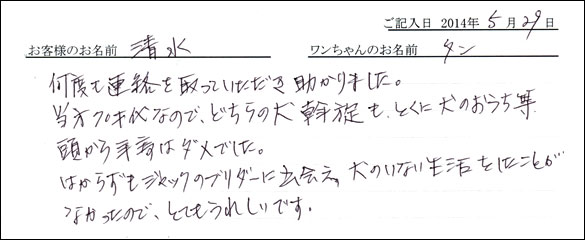 ご記入日 2014年 5月 29日
お客様のお名前 清水 ワンちゃんのお名前 タン
何度も連絡を取っていただき助かりました。
当方フキ代なので、どちらの犬斡旋も、とくに犬のおうち等
頭から年齢はダメでした。
はからずもジャックのブリダーに出会え、犬のいない生活をしたことが
なかったので、とてもうれしいです。